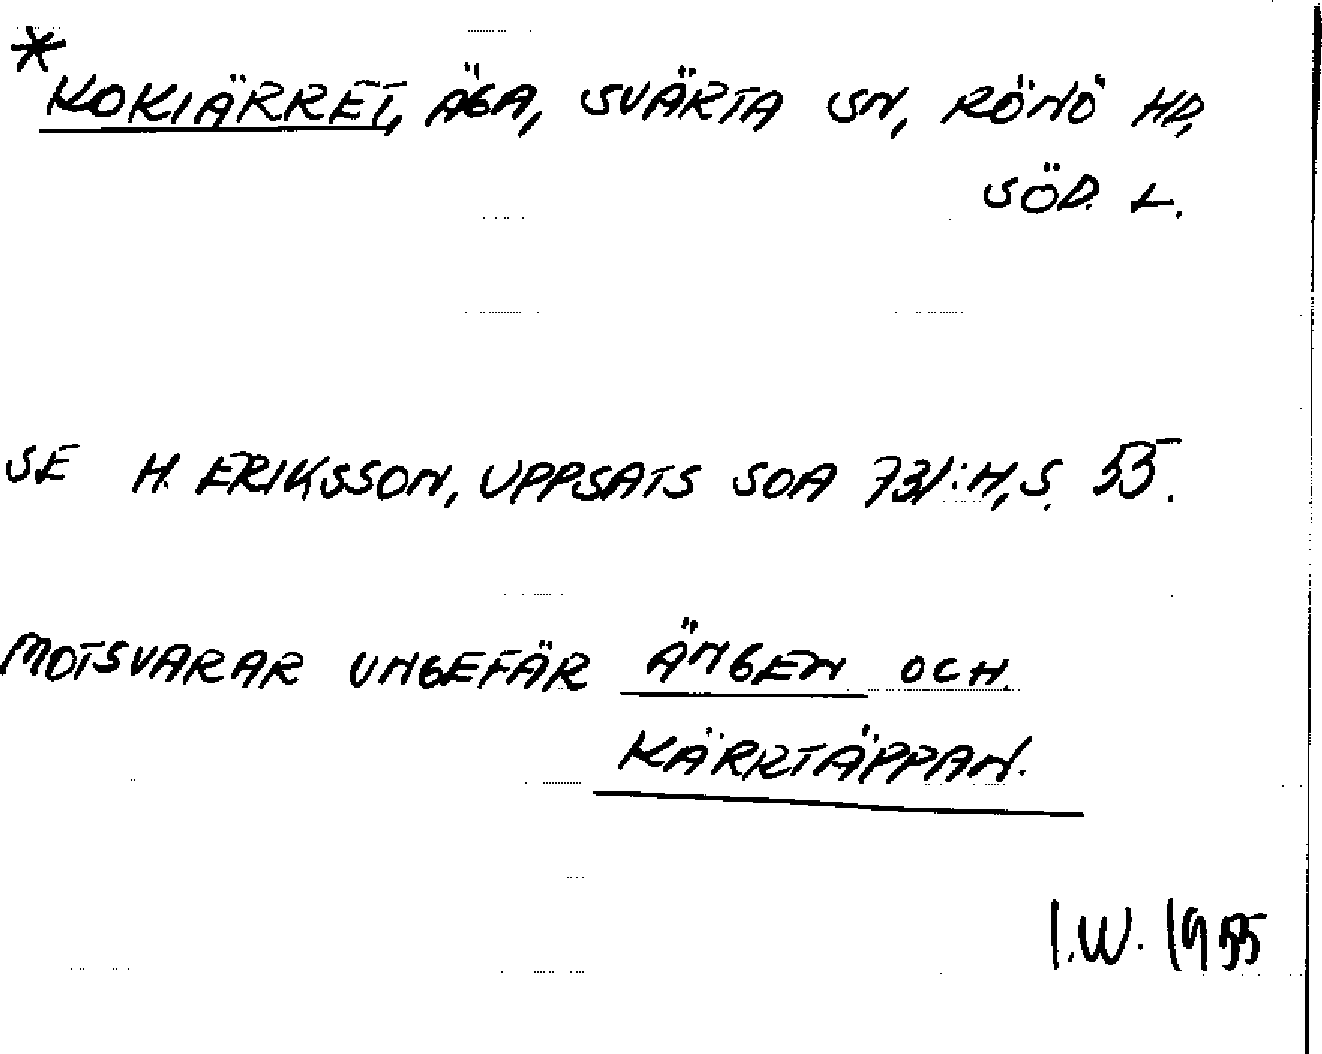 * KOKIÄRRET, ÄGA, SVÄRTA SN, RÖNÖ HD,
SÖD. L.
SE H. ERIKSSON, UPPSATS SOA 731:H, S. 55.
MOTSVARAR UNGEFÄR ÄNGEN OCH
KÄRRTÄPPAN.
I.W. 1955